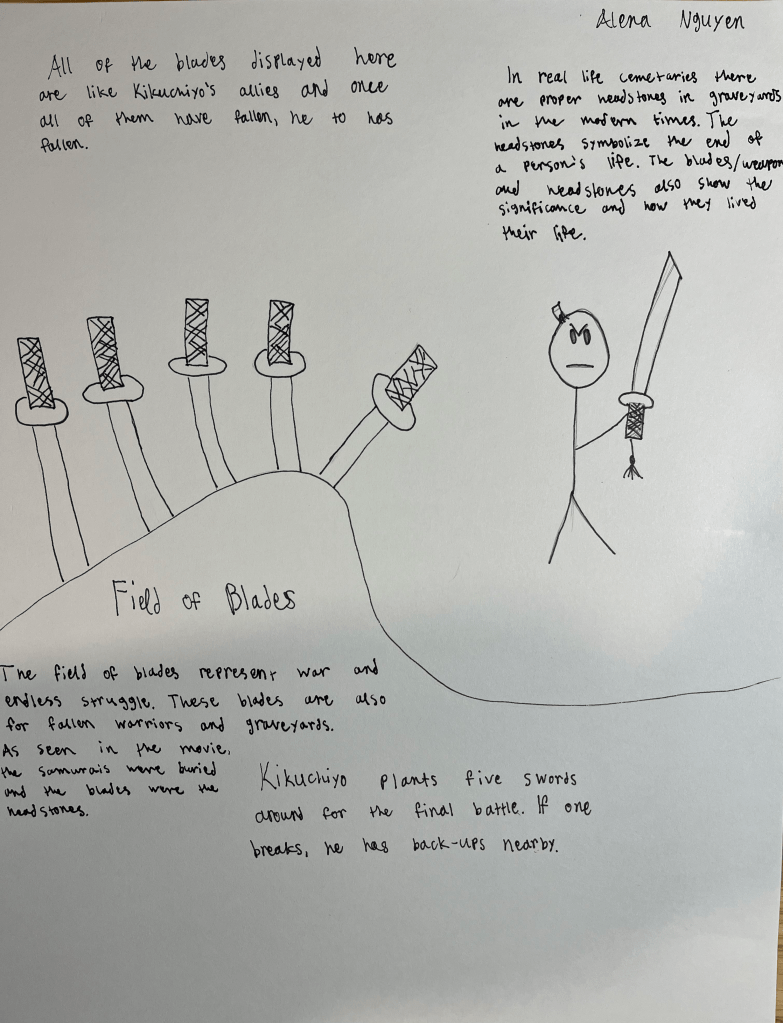 Alena Nguyen
All of the blades displayed here
are like Kikuchiyo's allies and once
all of them have fallen, he to has
fallen.
In real life cemetaries there
are proper headstones in graveyards
in the modern times. The
headstones symbolize the end of
a person's life. The blades/weapon
and headstones also show the
significance and how they lived
their life.
Field of Blades
The field of blades represent war and
endless struggle. These blades are also
for fallen warriors and graveyards.
As seen in the movie,
the samurais were buried
and the blades were the
headstones.
Kikuchiyo plants five swords
around for the final battle. If one
breaks, he has back-ups nearby.